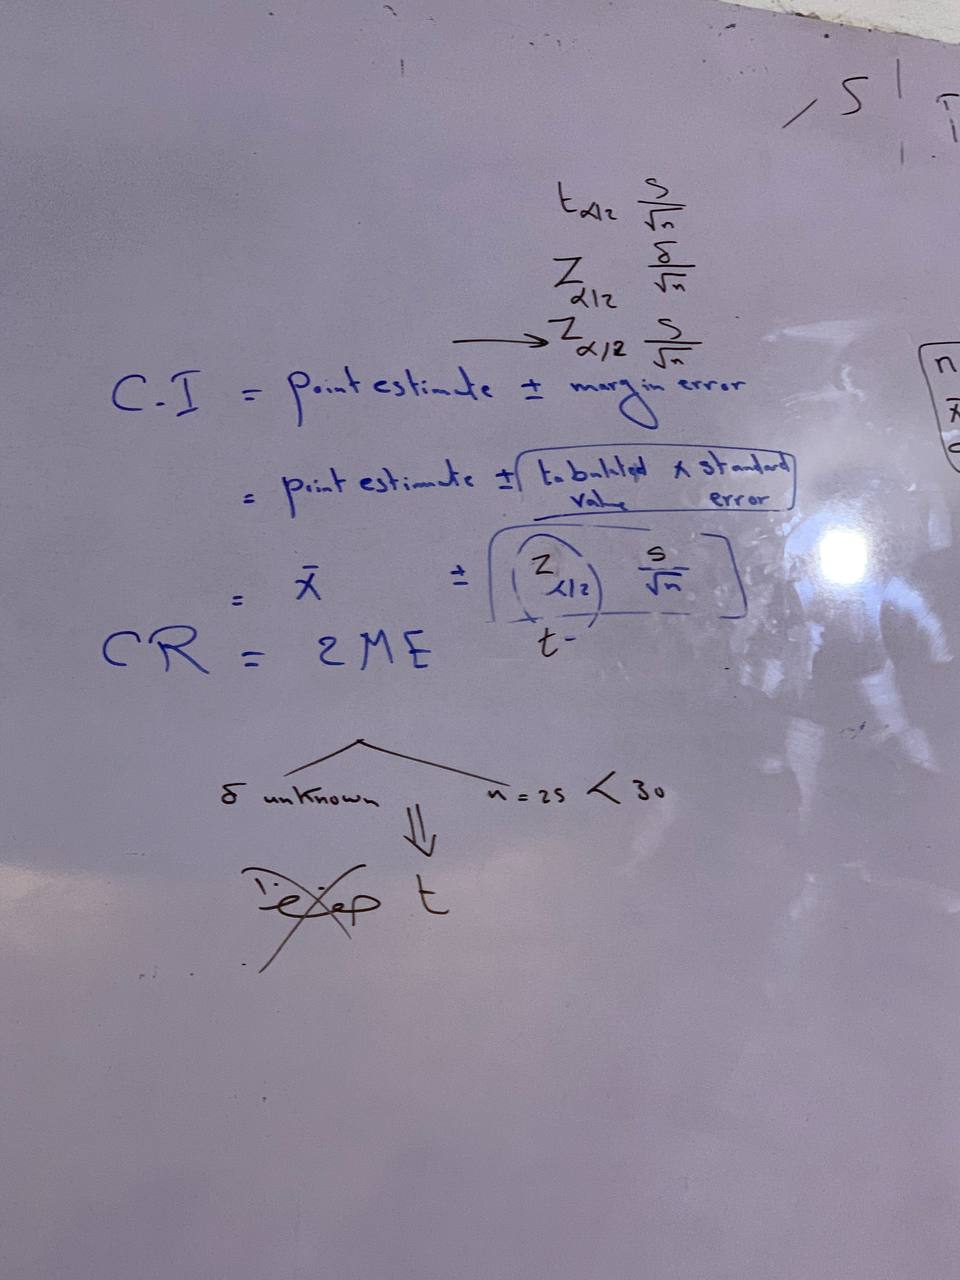 , S |
t α/2 S/√n
Z α/2 δ/√n
→ Z α/2 S/√n
n
C.I = point estimate ± margin error
x̄
= point estimate ± tabulated value × standard error
= x̄ ± [ (Z α/2) S/√n ]
t-
CR = 2ME
δ unknown n = 25 < 30
⇓
t